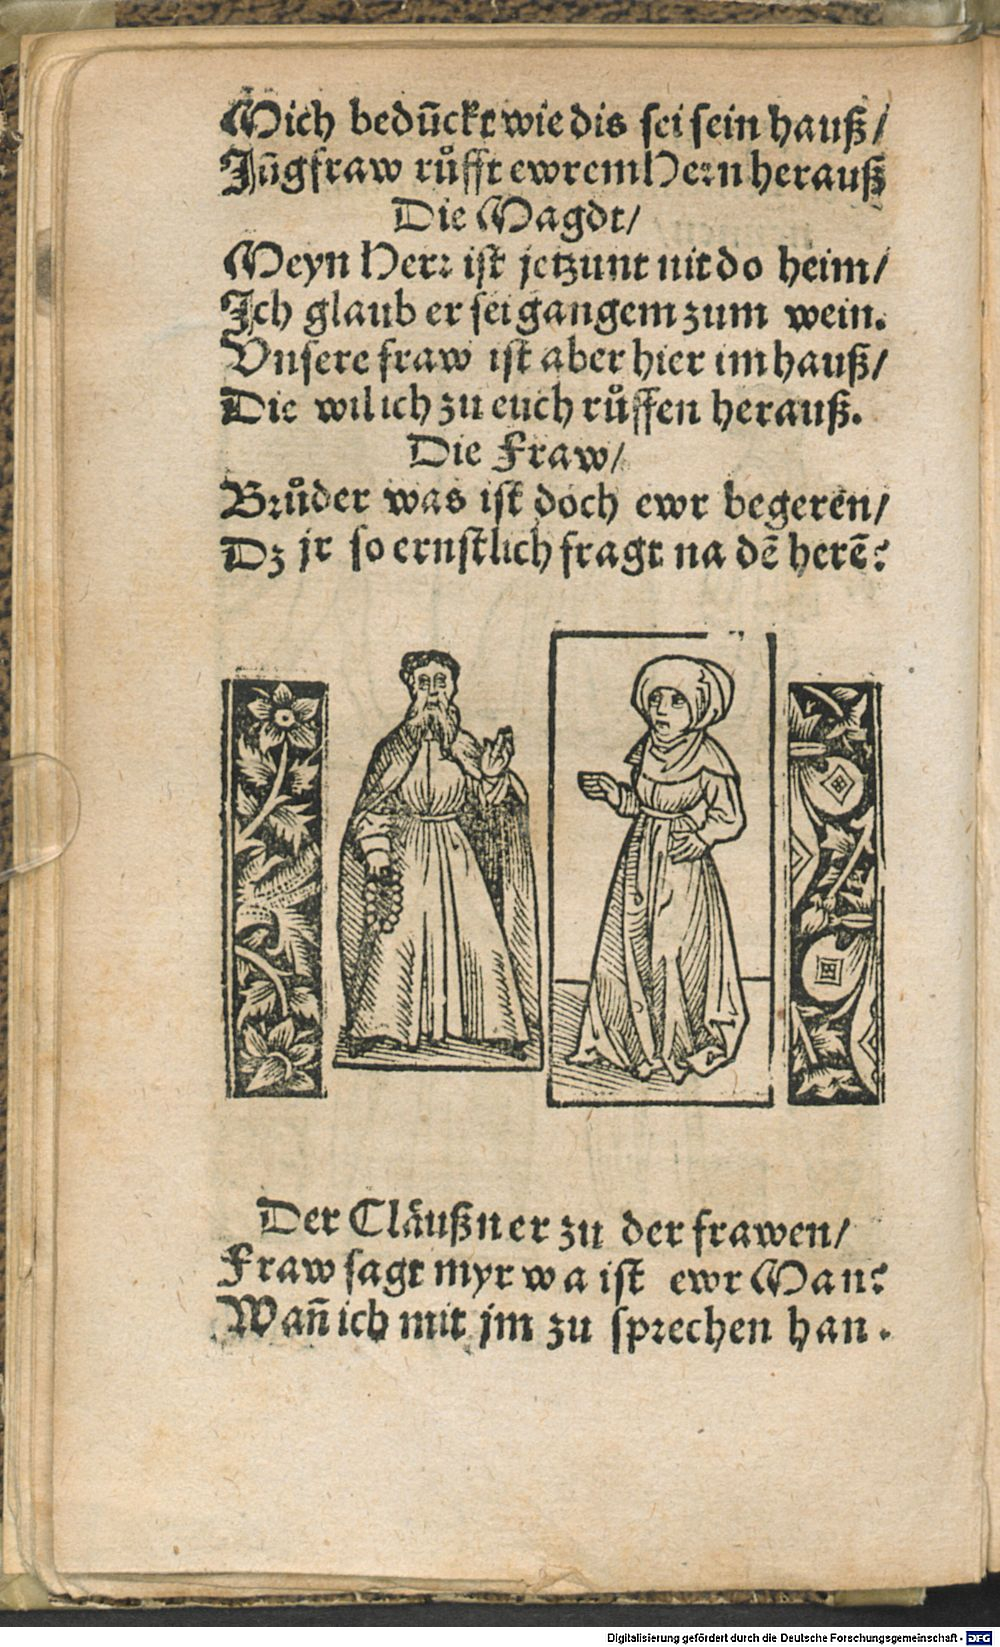 Mich bedūckt wie dis sei sein hauß/
Jūgfraw růfft ewrem Hern herauß
Die Magdt/
Meyn Herr ist jetzunt nit do heim/
Ich glaub er sei gangem zum wein.
Vnsere fraw ist aber hier im hauß/
Die wil ich zu euch růffen herauß.
Die Fraw/
Brůder was ist doch ewr begeren/
Dz jr so ernstlich fragt na dē herē?
Der Cläußner zu der frawen/
Fraw sagt myr wa ist ewr Man?
Wañ ich mit jm zu sprechen han.
Digitalisierung gefördert durch die Deutsche Forschungsgemeinschaft - DFG